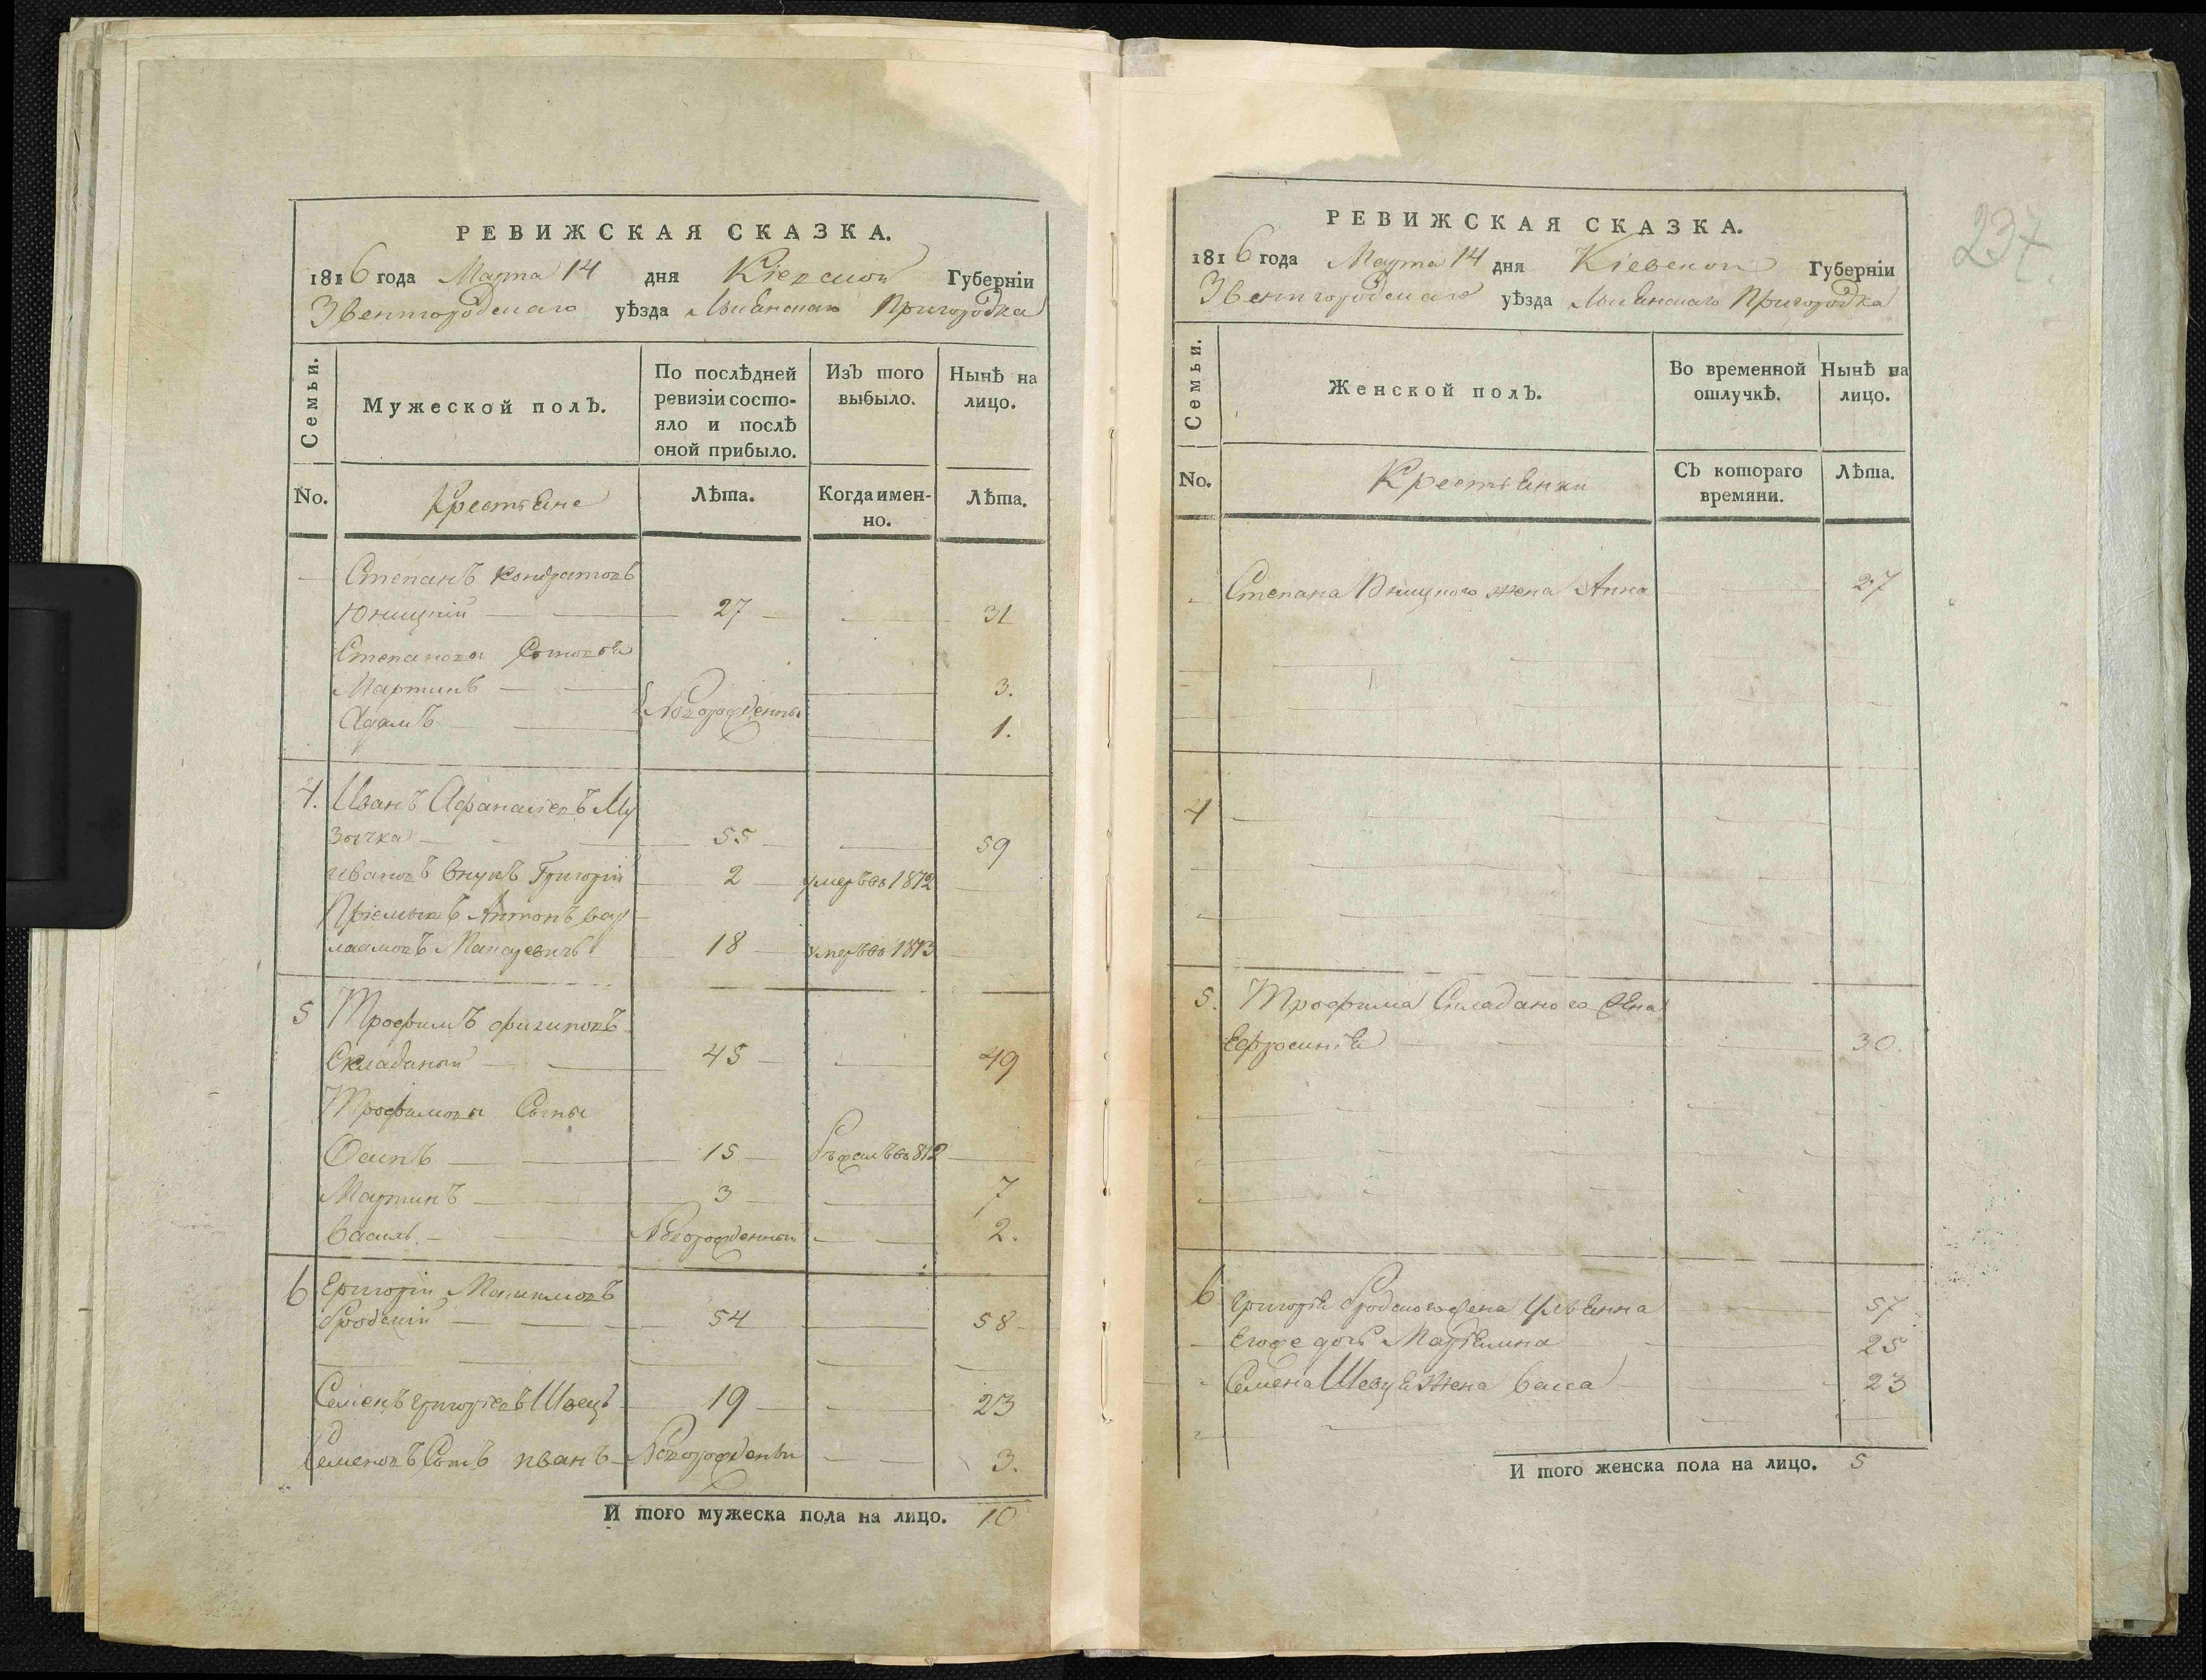 РЕВИЖСКАЯ СКАЗКА.
1816 года Марта 14 дня Кіевской Губерніи
Звенигородскаго уѣзда Лысянскаго Пригородка
Семьи.
Мужеской полЪ.
По послѣдней ревизіи состояло и послѣ оной прибыло.
ИзЪ того выбыло.
Нынѣ на лицо.
No.
Крестьяне
Лѣта.
Когда именно.
Лѣта.
СтепанЪ Кондратовъ
Юницкій 27 31
Степановы Сыновья
МартинЪ 3.
АдамЪ Новорожденны 1.
4. ИванЪ АфанасіевЪ Му
зычка 55 59
ИвановЪ внукЪ Григорій 2 умерЪ въ 1812
ПріемышЪ АнтонЪ Вар
лаамовЪ 18 умерЪ въ 1813
5 ТрофимЪ
Складаный 45 49
Трофимовы Сыны
ОсипЪ 15 въ 812
МартинЪ 3 7
Василь. Новорожденный 2.
6 Григорій МаксимовЪ
Бродскій 54 58
СеменЪ ГригоріевЪ Швецъ 19 23
СеменовЪ СынЪ ИванЪ Новорожденны 3.
И того мужеска пола на лицо. 10
237.
РЕВИЖСКАЯ СКАЗКА.
1816 года Марта 14 дня Кіевской Губерніи
Звенигородскаго уѣзда Лысянскаго Пригородка
Семьи.
Женской полЪ.
Во временной отлучкѣ.
Нынѣ на лицо.
No.
Крестьянки
СЪ котораго времяни.
Лѣта.
Степана Юницкого жена Анна 27
4
5. Трофима Складаного жена
Ефросинія 30.
6 Григорія Бродского жена Ульянна 57
Егоже дочь Маріянна 25
Семена Шевця жена Васса 23
И того женска пола на лицо. 5